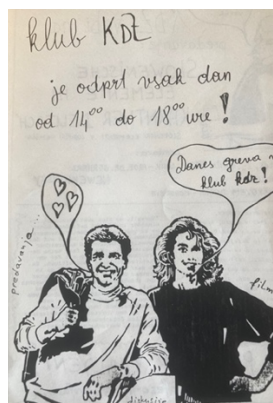 klub KDZ
je odprt vsak dan
od 14⁰⁰ do 18⁰⁰ ure!
Danes greva v
klub kdz!
predavanja...
film
diskusije